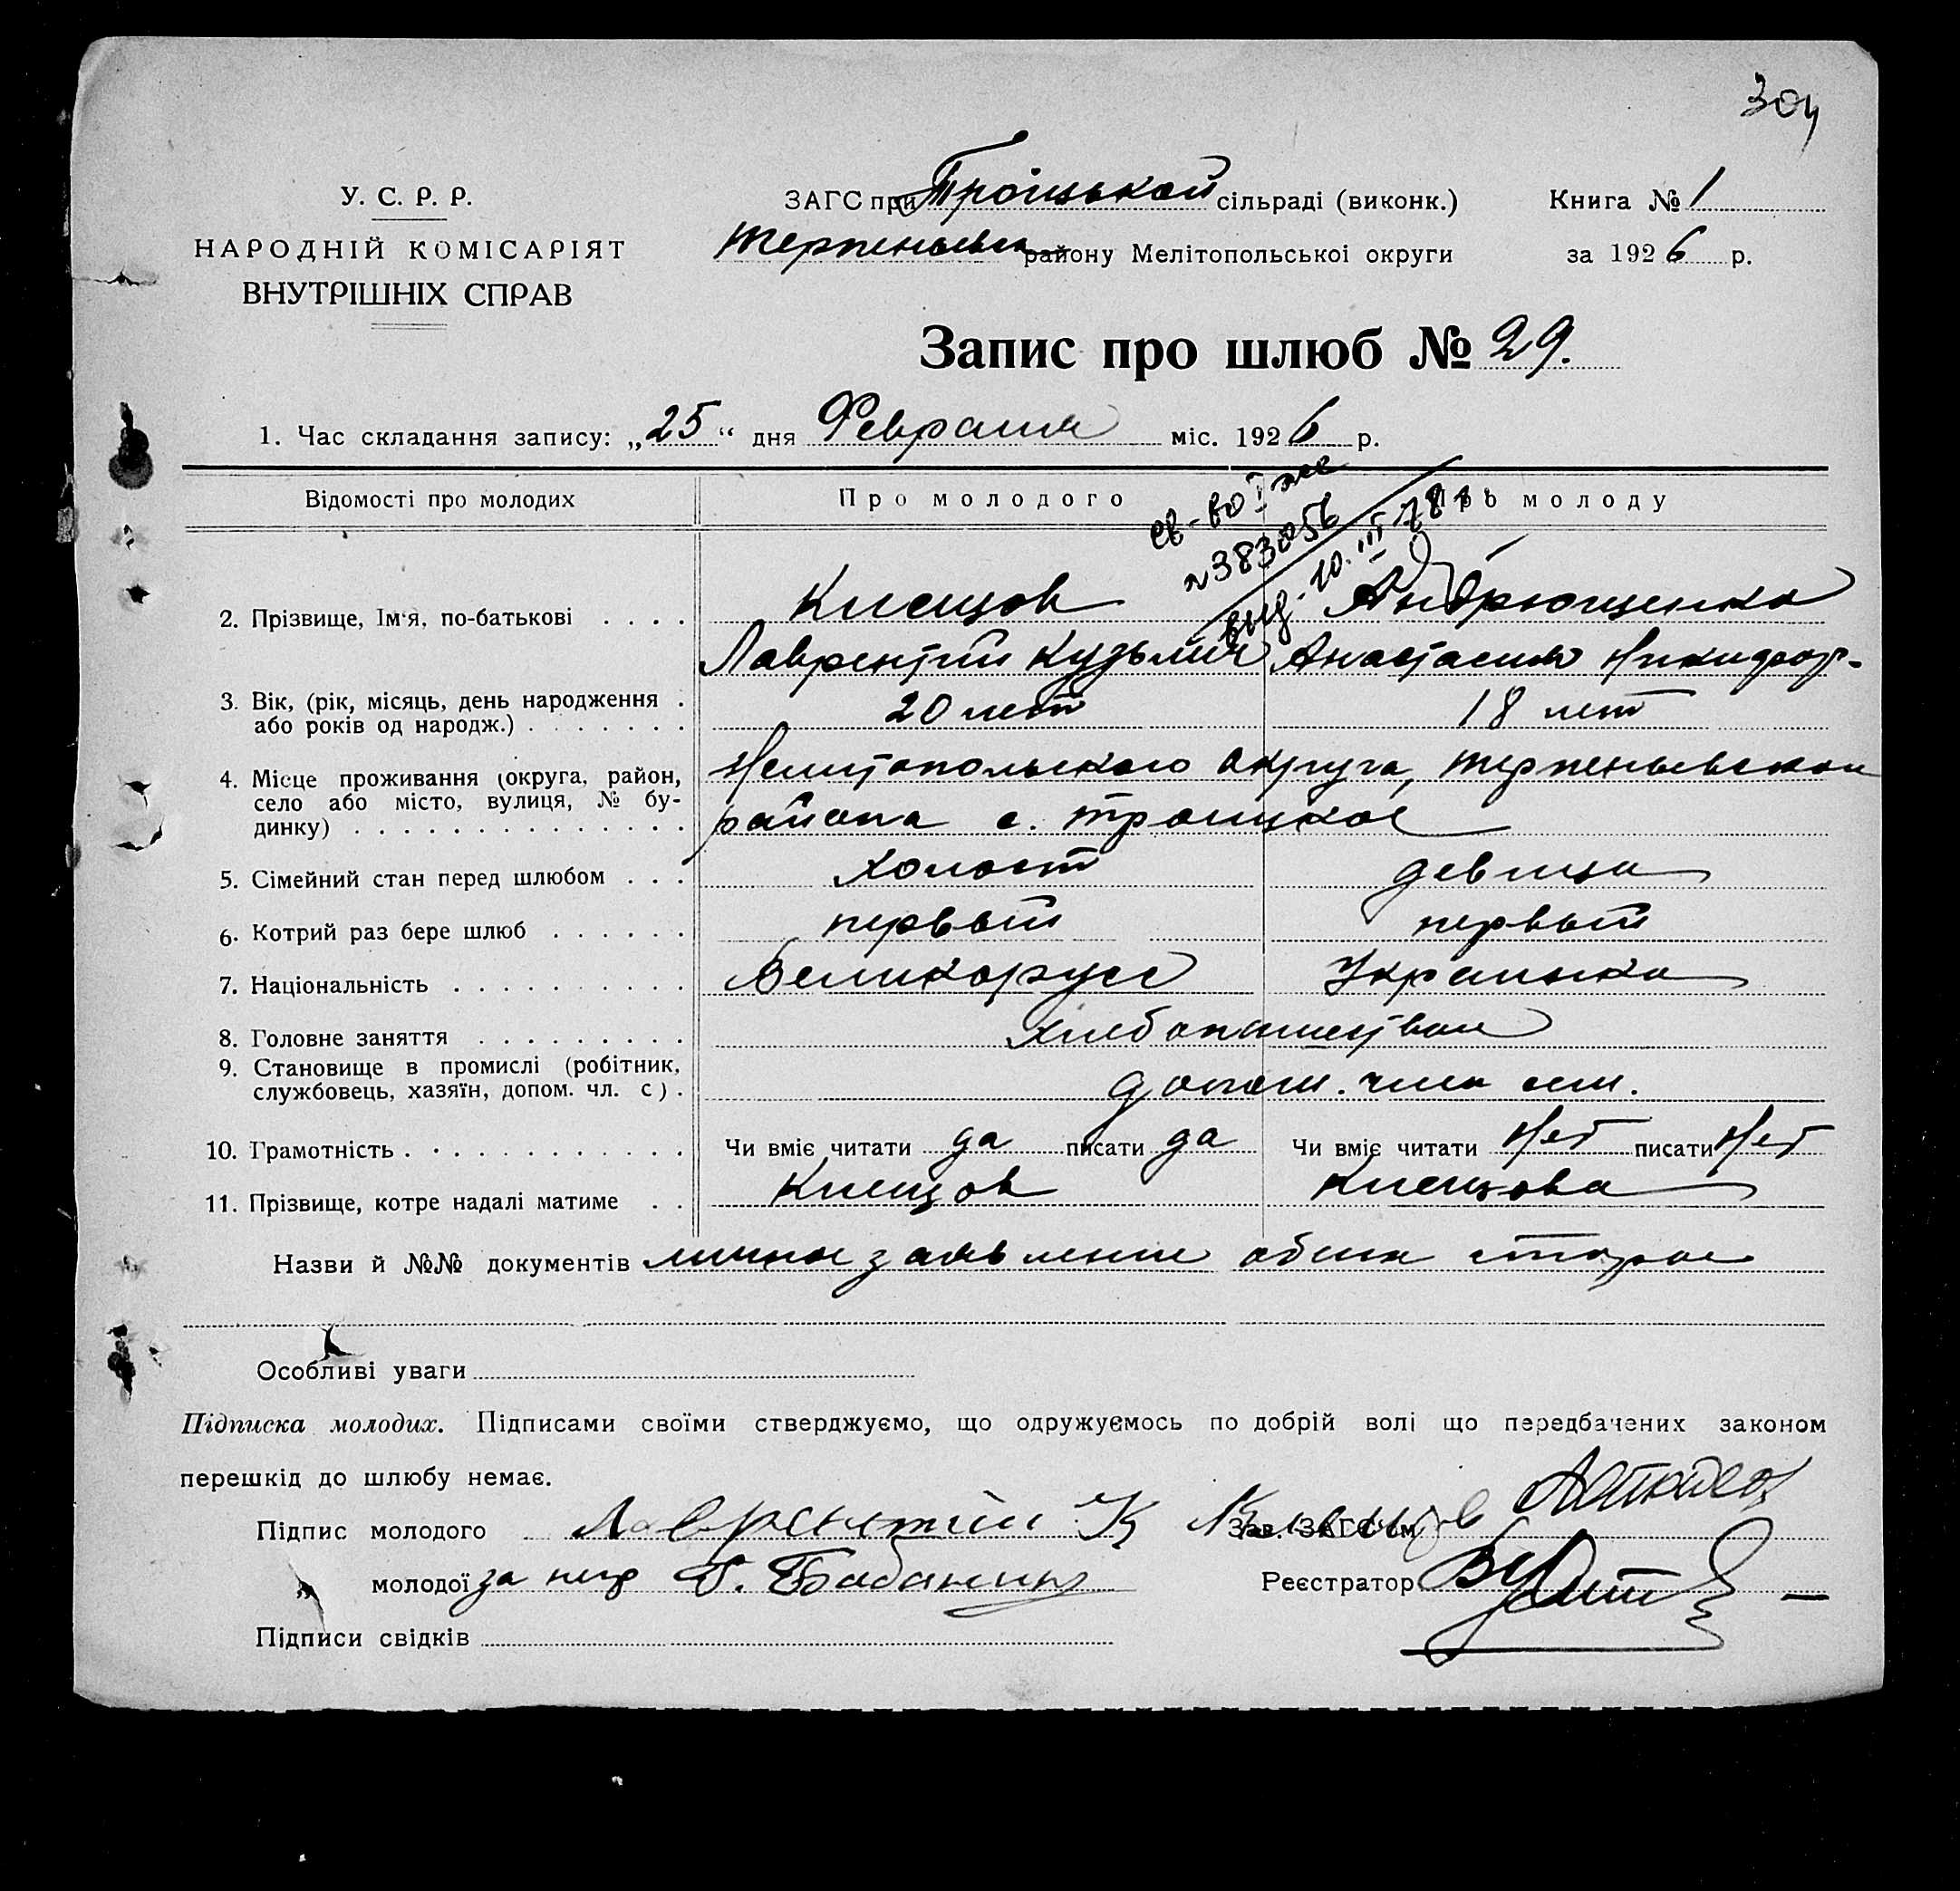 304
У. С. Р. Р.
НАРОДНІЙ КОМІСАРІЯТ
ВНУТРІШНІХ СПРАВ
ЗАГС при Троіцькой сільраді (виконк.)
Терпеньевск району Мелітопольської округи
Книга № 1
за 1926 р.
Запис про шлюб № 29.
1. Час складання запису: „25“ дня Февраля міс. 1926 р.
Відомості про молодих
Про молодого
Про молоду
св-во I же
№383056
выд. 10.III
2. Прізвище, Ім'я, по-батькові . . . . Клещов Андрющенко
Лаврентий Кузьмич Анастасия Никифор-
3. Вік, (рік, місяць, день народження .
або років од народж.) . . . . . . . 20 лет 18 лет
4. Місце проживання (округа, район, Мелитопольского Округа, Терпеньевского
село або місто, вулиця, № бу- района с. Троицкое
динку) . . . . . . . . . . . . . .
5. Сімейний стан перед шлюбом . . . холост девица
6. Котрий раз бере шлюб . . . . . . первый первый
7. Національність . . . . . . . . . . Великорусс Украинка
8. Головне заняття . . . . . . . . . хлебопашество
9. Становище в промислі (робітник,
службовець, хазяїн, допом. чл. с) . допом. член сем.
10. Грамотність . . . . . . . . . . . . Чи вміє читати да писати да Чи вміє читати Нет писати Нет
11. Прізвище, котре надалі матиме . . Клещов Клещова
Назви й №№ документів личное заявление обеих сторон
Особливі уваги
Підписка молодих. Підписами своїми стверджуємо, що одружуємось по добрій волі що передбачених законом
перешкід до шлюбу немає.
Підпис молодого Лаврентий К Клещов
Зав. ЗАГС'ом
молодої за негр Бабанин
Реєстратор
Підписи свідків